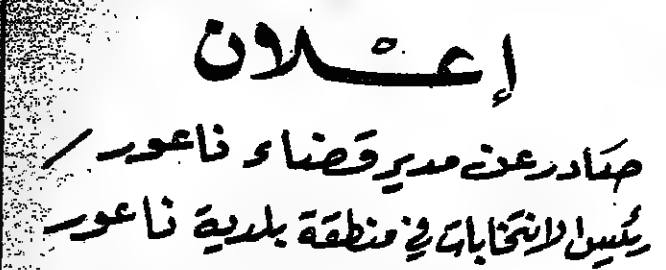 إعلان
صادر عن مدير قضاء ناعور /
رئيس الانتخابات في منطقة بلدية ناعور